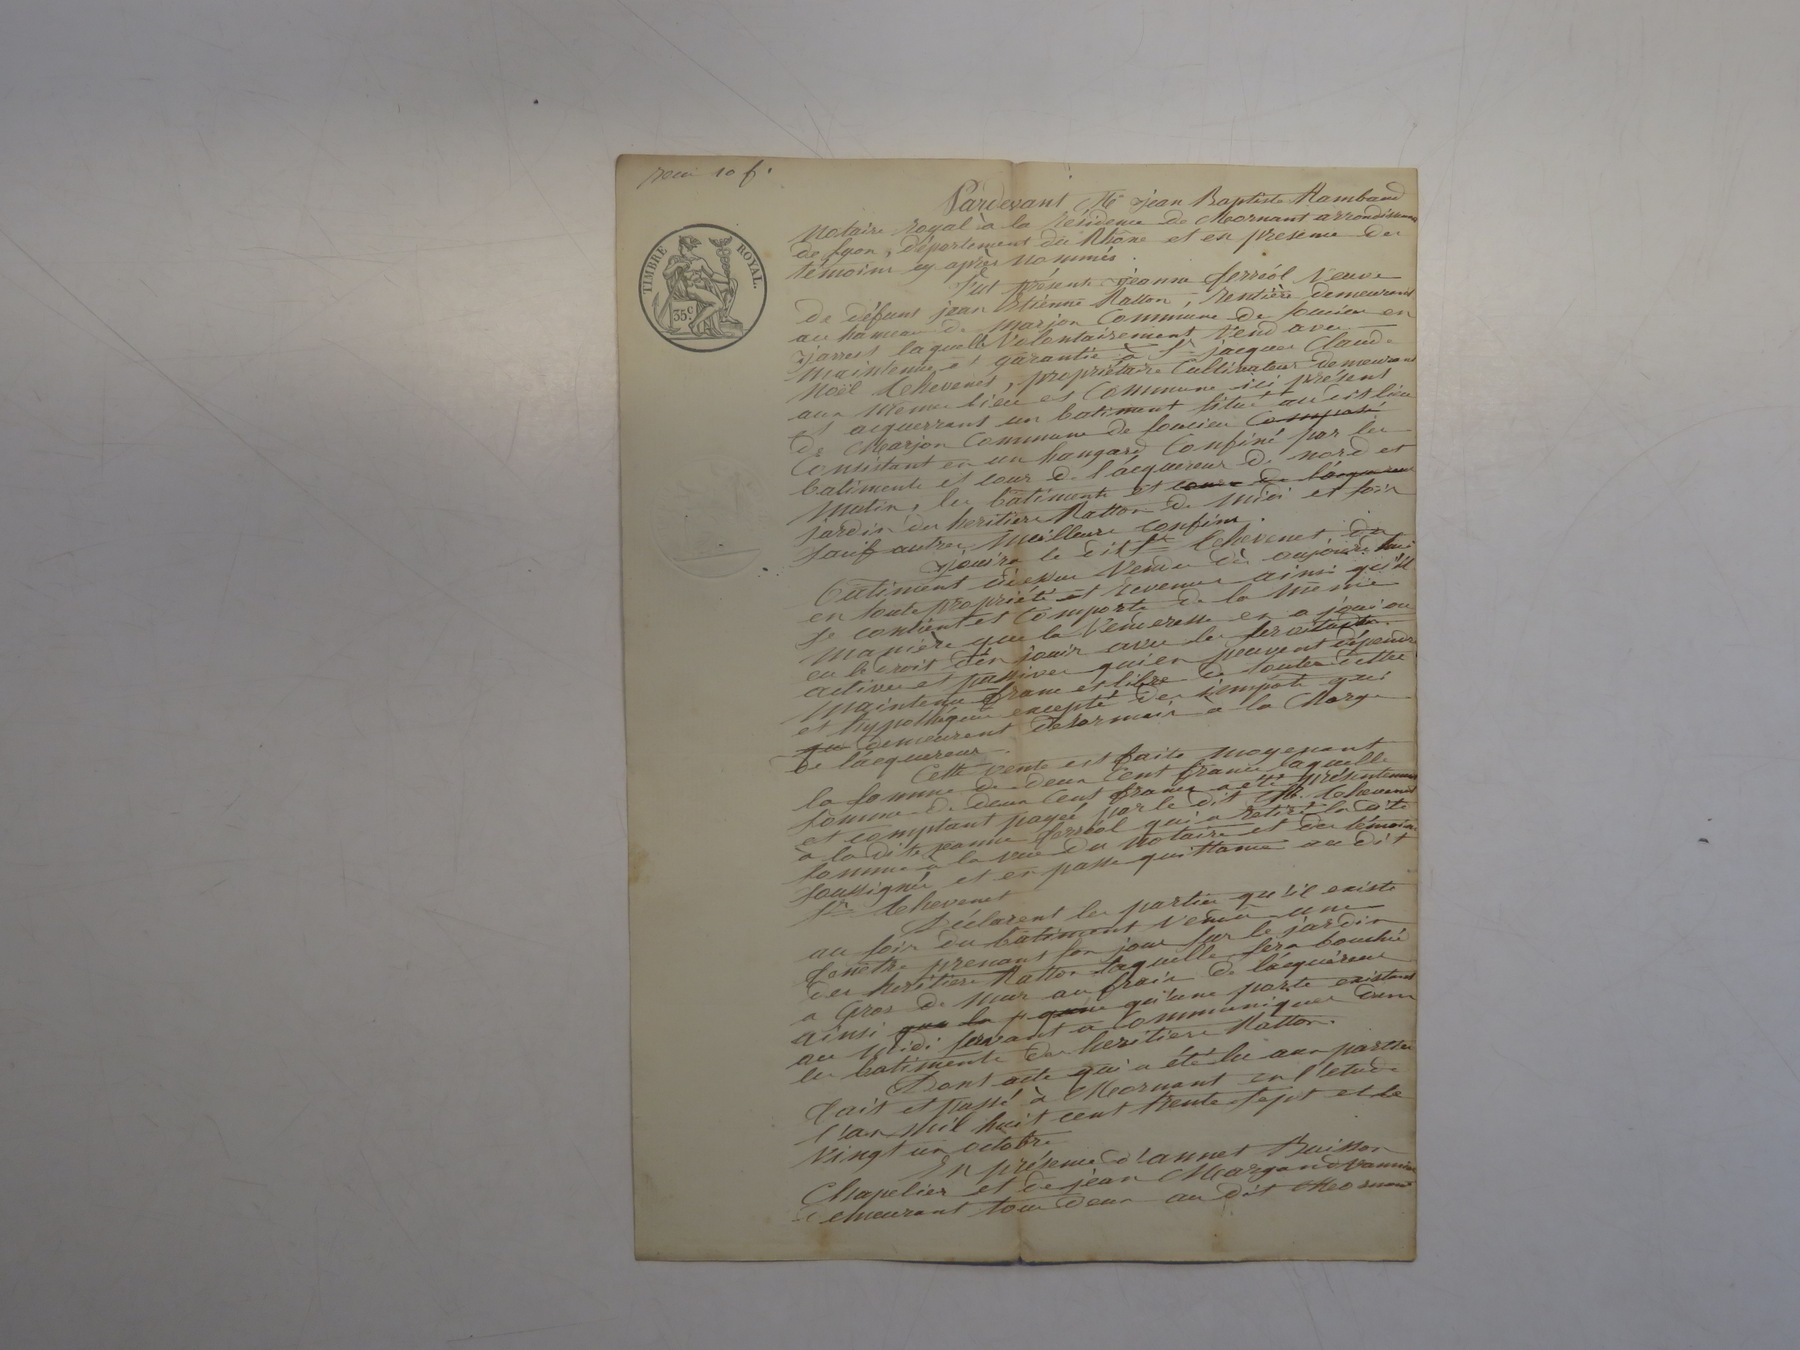 reçu 10 f.
TIMBRE ROYAL.
35 c.
Pardevant Me Jean Baptiste Rambaud
Notaire royal à la résidence de Mornant arrondissement
de Lyon, département du Rhône et en presence des
témoins cy après nommés.
Fut présente Jeanne Ferréol Veuve
de défunt jean Etienne Ratton, rentière demeurant
au hameau de marjon Commune de Soucieu en
jarrest laquelle Volontairement Vend avec
maintenue et garantie à Sr jacques Claude
Noël Chevenet, propriétaire Cultivateur demeurant
aux meme lieu et Commune ici présent
et acquerrant un batiment situé au cit lieu
de Marjon Commune de Soucieu Composé
Consistant en un hangard Confiné par les
batiments et cour de l'acquereur de nord et
matin, les batiments et cour de l'acquereur
jardin des heritiers Ratton de midi et soir
sauf autres meilleurs confins.
Jouira le dit Sr Chevenet du
Batiment dessus Vendu dès aujourd'hui
en toute propriété et revenus ainsi qu'il
se contient et Comporte de la meme
manière que la Venderesse en a joui ou
eu le droit d'en jouir avec les servitudes
actives et passives qui en peuvent dépendre
maintenu franc et libre de toutes dettes
et hypothèques excepté des impots qui
que demeurent désormais à la charge
de l'acquereur.
Cette vente est faite moyenant
la somme de deux Cent francs laquelle
somme de deux Cent francs a été présentement
et comptant payée par le dit Sr Chevenet
à la dite jeanne Ferréol qui a retiré la dite
somme à la vue du Notaire et des témoins
soussignés et en passe quittance au dit
Sr Chevenet
Déclarent les parties qu'il existe
au soir du batiment Vendu une
fenêtre prenant son jour sur le jardin
des heritiers Ratton laquelle sera bouchée
a Gros de mur au frais de l'acquéreur
ainsi que la qu'une porte existant
au Midi servant a Communiquer dans
les batiments des heritiers Ratton.
Dont acte qui a été lu aux parties
Fait et passé à Mornant en l'etude
l'an mil huit cent trente sept et le
Vingt un octobre
En présence d'annet Buisson
Chapelier et de jean Margand
demeurant tous deux au dit Mornant